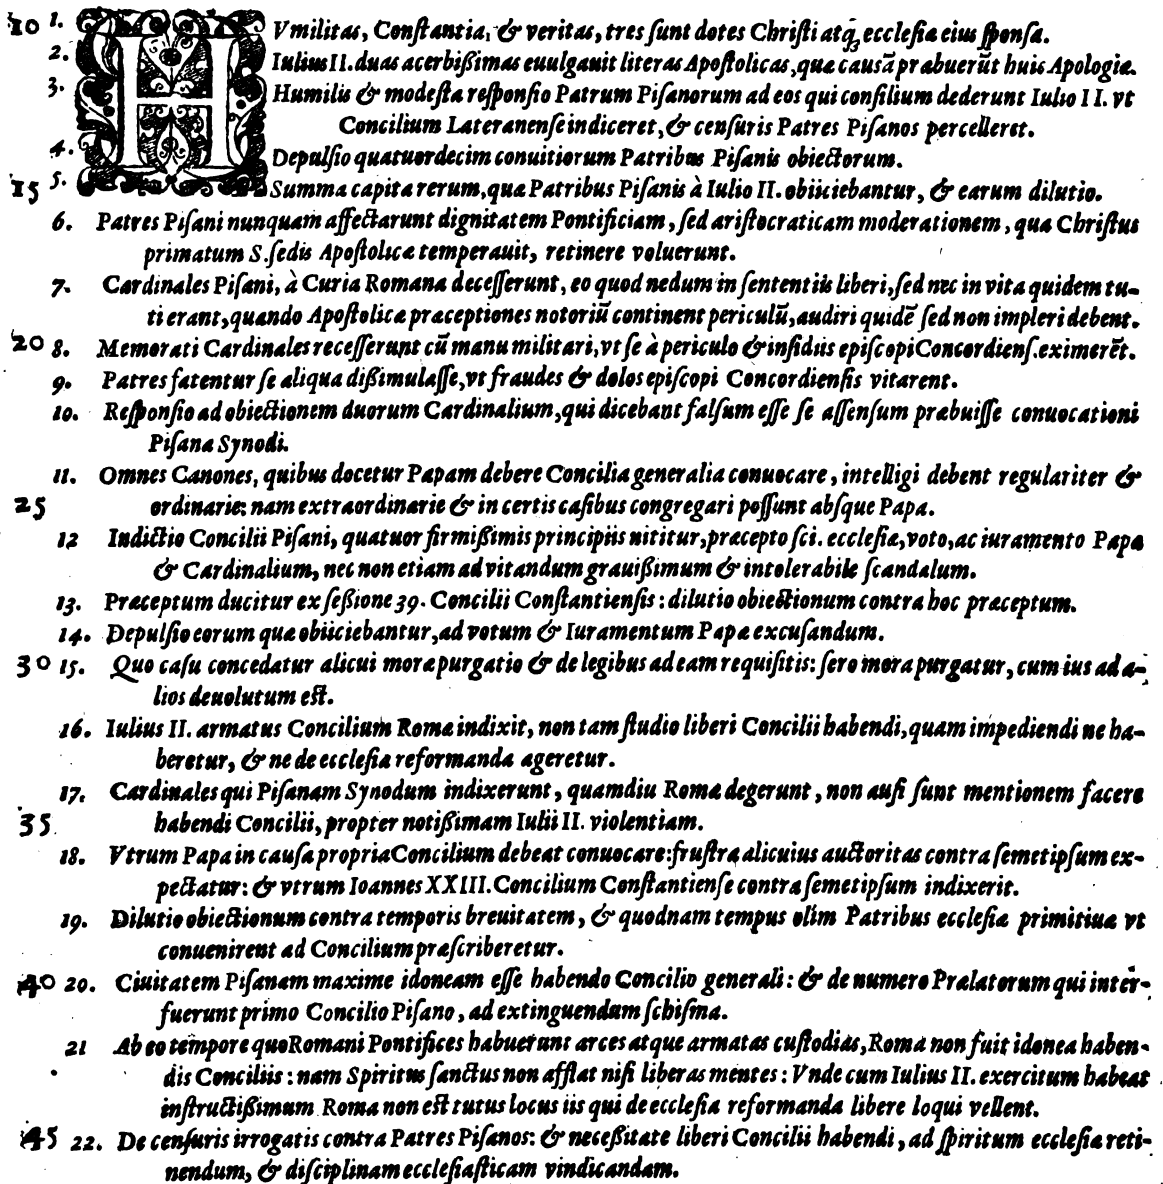 10 1. HVmilitas, Constantia, & veritas, tres sunt dotes Christi atq; ecclesiæ eius sponsæ.
2. Iulius II. duas acerbißimas euulgauit literas Apostolicas, quæ causã præbuerũt huic Apologiæ.
3. Humilis & modesta responsio Patrum Pisanorum ad eos qui consilium dederunt Iulio II. vt
Concilium Lateranense indiceret, & censuris Patres Pisanos percelleret.
4. Depulsio quatuordecim conuitiorum Patribus Pisanis obiectorum.
15 5. Summa capita rerum, quæ Patribus Pisanis à Iulio II. obiiciebantur, & earum dilutio.
6. Patres Pisani nunquam affectarunt dignitatem Pontificiam, sed aristocraticam moderationem, qua Christus
primatum S. sedis Apostolicæ temperauit, retinere voluerunt.
7. Cardinales Pisani, à Curia Romana decesserunt, eo quod nedum in sententiis liberi, sed nec in vita quidem tu-
ti erant, quando Apostolicæ præceptiones notoriũ continent periculũ, audiri quidẽ sed non impleri debent.
20 8. Memorati Cardinales recesserunt cũ manu militari, vt se à periculo & insidiis episcopi Concordiens. eximerẽt.
9. Patres fatentur se aliqua dißimulasse, vt fraudes & dolos episcopi Concordiensis vitarent.
10. Responsio ad obiectionem duorum Cardinalium, qui dicebant falsum esse se assensum præbuisse conuocationi
Pisanæ Synodi.
11. Omnes Canones, quibus docetur Papam debere Concilia generalia conuocare, intelligi debent regulariter &
25 ordinarie: nam extraordinarie & in certis casibus congregari possunt absque Papa.
12 Indictio Concilii Pisani, quatuor firmißimis principiis nititur, præcepto sci. ecclesiæ, voto, ac iuramento Papæ
& Cardinalium, nec non etiam ad vitandum grauißimum & intolerabile scandalum.
13. Præceptum ducitur ex seßione 39. Concilii Constantiensis: dilutio obiectionum contra hoc præceptum.
14. Depulsio eorum quæ obiiciebantur, ad votum & Iuramentum Papæ excusandum.
30 15. Quo casu concedatur alicui moræ purgatio & de legibus ad eam requisitis: sero mora purgatur, cum ius ad a-
lios deuolutum est.
16. Iulius II. armatus Concilium Romæ indixit, non tam studio liberi Concilii habendi, quam impediendi ne ha-
beretur, & ne de ecclesia reformanda ageretur.
17. Cardinales qui Pisanam Synodum indixerunt, quamdiu Romæ degerunt, non ausi sunt mentionem facere
35 habendi Concilii, propter notißimam Iulii II. violentiam.
18. Vtrum Papa in causa propria Concilium debeat conuocare: frustra alicuius auctoritas contra semetipsum ex-
pectatur: & vtrum Ioannes XXIII. Concilium Constantiense contra semetipsum indixerit.
19. Dilutio obiectionum contra temporis breuitatem, & quodnam tempus olim Patribus ecclesiæ primitiuæ vt
conuenirent ad Concilium præscriberetur.
40 20. Ciuitatem Pisanam maxime idoneam esse habendo Concilio generali: & de numero Prælatorum qui inter-
fuerunt primo Concilio Pisano, ad extinguendum schisma.
21 Ab eo tempore quo Romani Pontifices habuerunt arces atque armatas custodias, Roma non fuit idonea haben-
dis Conciliis: nam Spiritus sanctus non afflat nisi liberas mentes: Vnde cum Iulius II. exercitum habeat
instructißimum Roma non est tutus locus iis qui de ecclesia reformanda libere loqui vellent.
45 22. De censuris irrogatis contra Patres Pisanos: & neceßitate liberi Concilii habendi, ad spiritum ecclesiæ reti-
nendum, & disciplinam ecclesiasticam vindicandam.